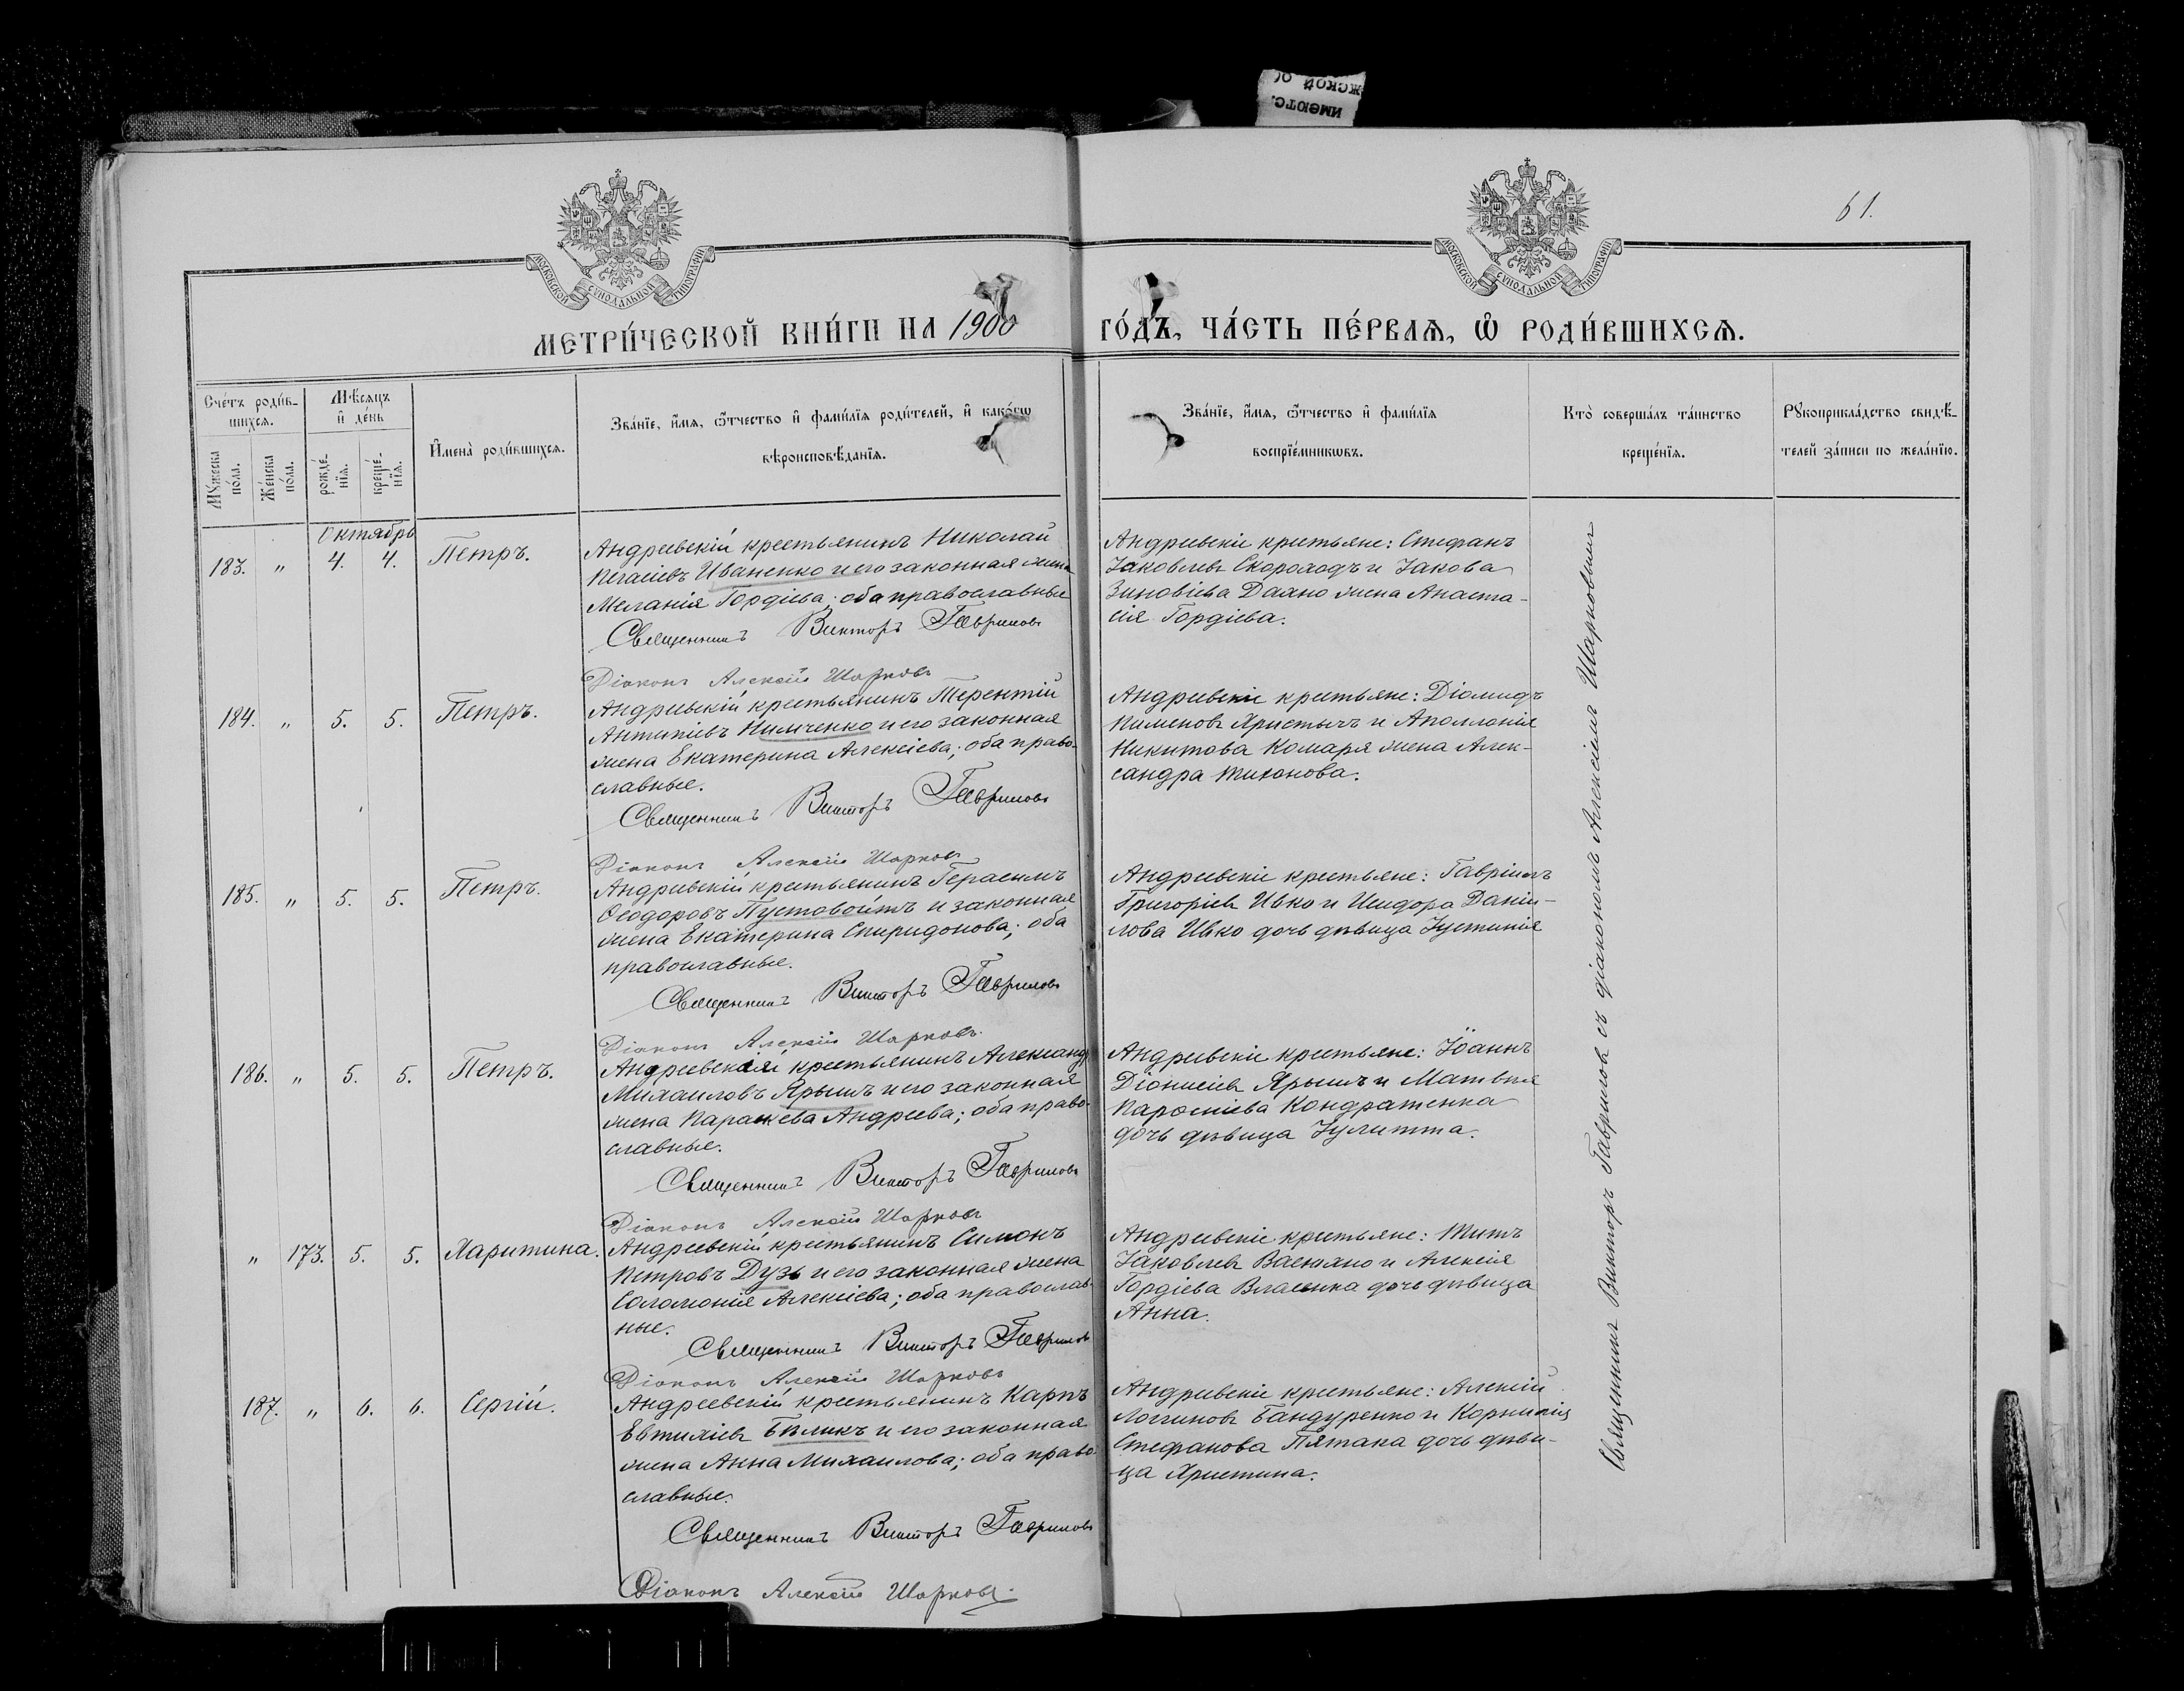 61.
МОСКОВСКОЙ СУНОДАЛЬНОЙ ТИПОГРАФІИ
МОСКОВСКОЙ СУНОДАЛЬНОЙ ТИПОГРАФІИ
МЕТРИ́ЧЕСКОЙ КНИ́ГИ НА 1900 ГО́ДЪ, ЧА́СТЬ ПЕ́РВАѦ, Ѡ҆ РОДИ́ВШИХСѦ.
Сче́тъ роди́в-
шихся.
Мѣ́сяцъ
и҆ де́нь
Мꙋ́жеска
по́ла.
Же́нска
по́ла.
рожде́-
нїѧ.
креще́-
нїѧ.
И҆мена̀ роди́вшихсѧ.
Зва́нїе, и҆́мѧ, ѻ҆́тчество и҆ фами́лїѧ роди́телей, и҆ како́гѡ
вѣроисповѣ́данїѧ.
Зва́нїе, и҆́мѧ, ѻ҆́тчество и҆ фами́лїѧ
воспрїе́мникѡвъ.
Кто̀ соверша́лъ та́инство
креще́нїѧ.
Рꙋкоприкла́дство свидѣ́-
телей за́писи по жела́нїю.
Октябрь
183. " 4. 4. Петръ.
Андреевскій крестьянинъ Николай
Пегасіевъ Иваненко и его законная жена
Меланія Гордіева; оба православные
Священникъ Викторъ Гавриловъ
Діаконъ Алексій Шарковъ
Андреевскіе крестьяне: Стефанъ
Іаковлевъ Скороходъ и Іакова
Зиновіева Дахно жена Анаста-
сія Гордіева.
184. " 5. 5. Петръ.
Андреевскій крестьянинъ Терентій
Антипіевъ Нимченко и его законная
жена Екатерина Алексіева; оба право-
славные.
Священникъ Викторъ Гавриловъ
Діаконъ Алексій Шарковъ
Андреевскіе крестьяне: Діомидъ
Пименовъ Христычъ и Аполлонія
Никитова Комаря жена Алек-
сандра Тихонова.
185. " 5. 5. Петръ.
Андреевскій крестьянинъ Герасимъ
Ѳеодоровъ Пустовойтъ и законная
жена Екатерина Спиридонова; оба
православные.
Священникъ Викторъ Гавриловъ
Діаконъ Алексій Шарковъ
Андреевскіе крестьяне: Гавріилъ
Григоріевъ Ивко и Исидора Даніи-
лова Ивко дочь дѣвица Іустинія
186. " 5. 5. Петръ.
Андреевскій крестьянинъ Александръ
Михаиловъ Ярышъ и его законная
жена Параскева Андреева; оба право-
славные.
Священникъ Викторъ Гавриловъ
Діаконъ Алексій Шарковъ
Андреевскіе крестьяне: Іоаннъ
Діонисіевъ Ярышъ и Матвѣя
Кондратенка
дочь дѣвица Іулитта.
" 173. 5. 5. Харитина.
Андреевскій крестьянинъ Симонъ
Петровъ Дузь и его законная жена
Соломонія Алексіева; оба православ-
ные.
Священникъ Викторъ Гавриловъ
Діаконъ Алексій Шарковъ
Андреевскіе крестьяне: Титъ
Іаковлевъ Васюхно и Алексія
Гордіева Власенка дочь дѣвица
Анна.
187. " 6. 6. Сергій.
Андреевскій крестьянинъ Карпъ
Евтихіевъ Бѣликъ и его законная
жена Анна Михаилова; оба право-
славные.
Священникъ Викторъ Гавриловъ
Діаконъ Алексій Шарковъ.
Андреевскіе крестьяне: Алексій
Логгиновъ Бандуренко и Корнилія
Стефанова Пятака дочь дѣви-
ца Христина.
Священникъ Викторъ Гавриловъ съ діакономъ Алексіемъ Шарковымъ